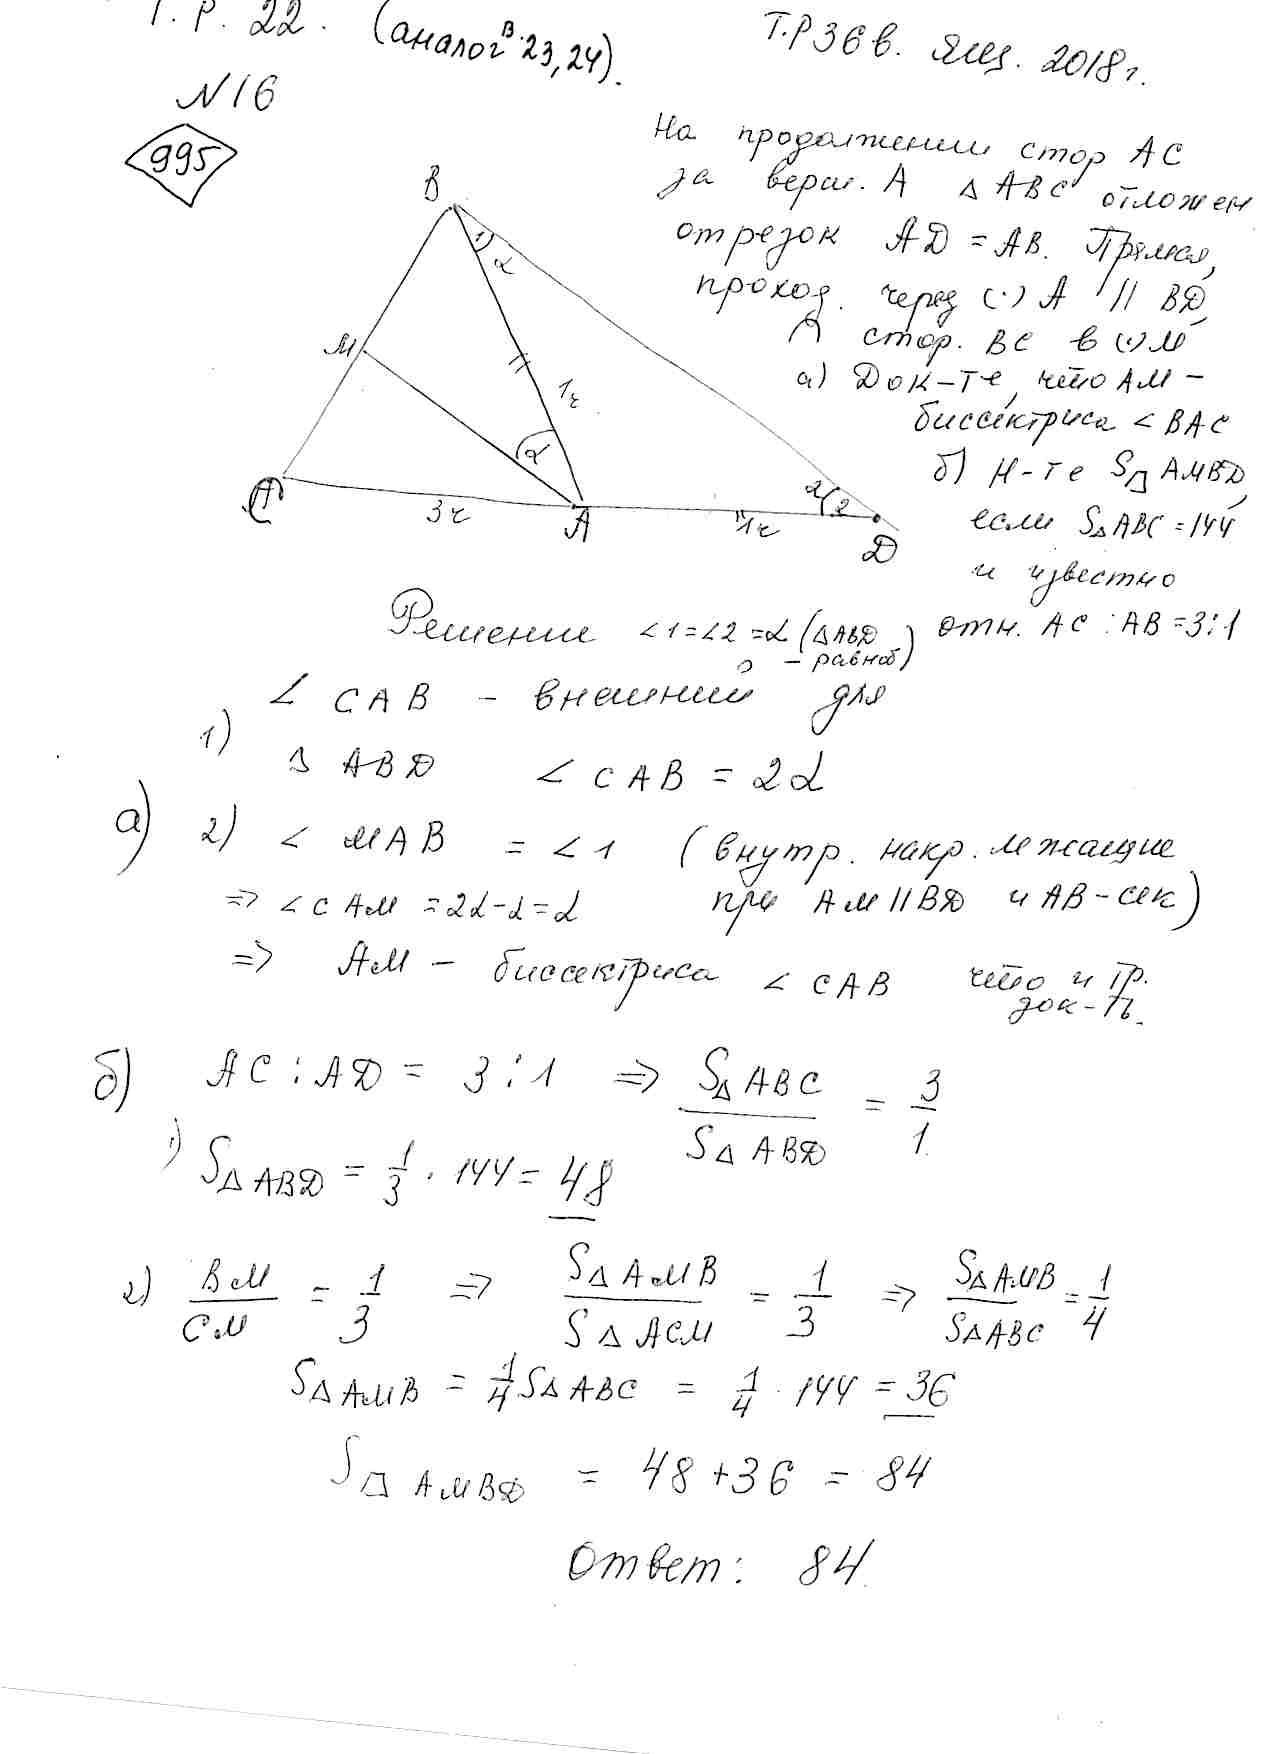 Т.Р. 22. (аналог в. 23, 24).
Т.Р 36 в. Ящ. 2018 г.
N 16
995
На продолжении стор AC
за верш. A △ ABC отложен
отрезок AD = AB. Прямая,
проход. через (·) A || BD,
∩ стор. BC в (·) M
а) Док-те, что AM -
биссектриса ∠ BAC
б) Н-те S AMBD,
если S△ ABC = 144
и известно
отн. AC : AB = 3:1
B
1
α
M
1x
α
C
3x
A
1x
α
2
D
Решение ∠1=∠2=α (△ABD - равноб)
1) ∠ CAB - внешний для
△ ABD ∠ CAB = 2α
а) 2) ∠ MAB = ∠ 1 (внутр. накр. лежащие
при AM || BD и AB - сек)
=> ∠ CAM = 2α - α = α
=> AM - биссектриса ∠ CAB что и тр. док-ть.
б) AC : AD = 3 : 1 => S△ ABC / S△ ABD = 3/1
1) S△ ABD = 1/3 · 144 = 48
2) BM/CM = 1/3 => S△ AMB / S△ ACM = 1/3 => S△ AMB / S△ ABC = 1/4
S△ AMB = 1/4 S△ ABC = 1/4 · 144 = 36
S AMBD = 48 + 36 = 84
Ответ: 84